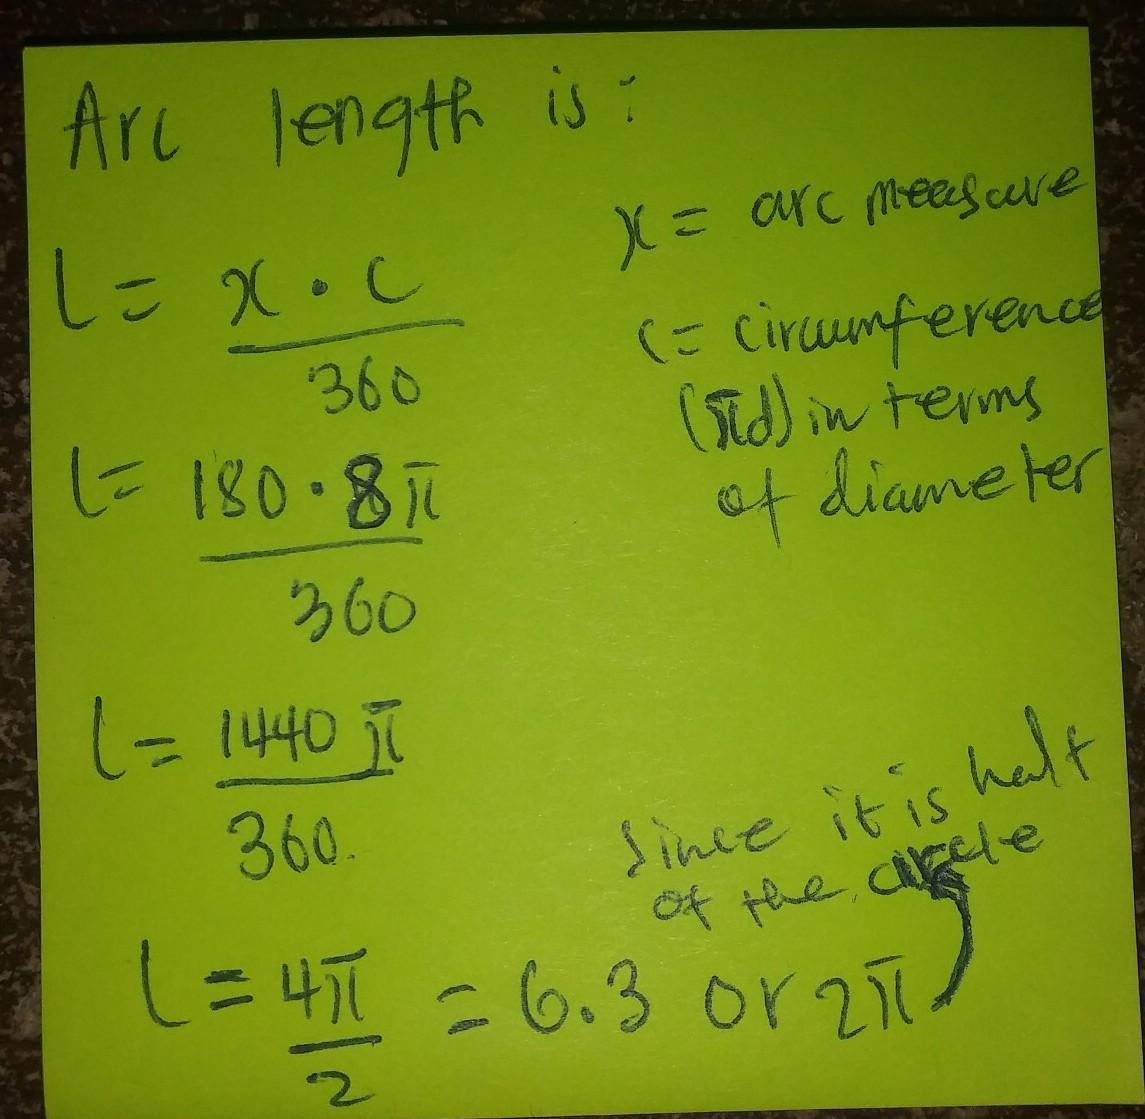 Arc length is:
x = arc measure
l = x · c
360
c = circumference
(πd) in terms
of diameter
l = 180 · 8π
360
l = 1440 π
360.
since it is half
of the circle
l = 4π = 6.3 or 2π
2